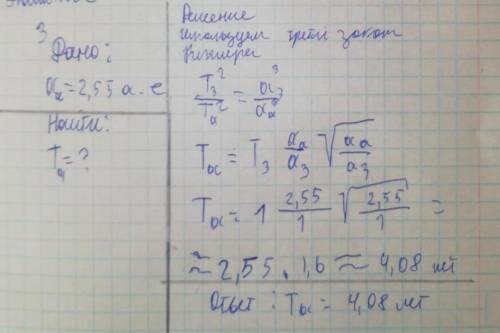 3
Дано:
aₐ = 2,55 а. е
Найти:
Tₐ = ?
Решение
Используем третий закон
Кеплера
T₃²/Tₐ² = a₃³/aₐ³
Tₐ = T₃ aₐ/a₃ √(aₐ/a₃)
Tₐ = 1 2,55/1 √(2,55/1) =
≈ 2,55 . 1,6 ≈ 4,08 лет
Ответ : Tₐ = 4,08 лет